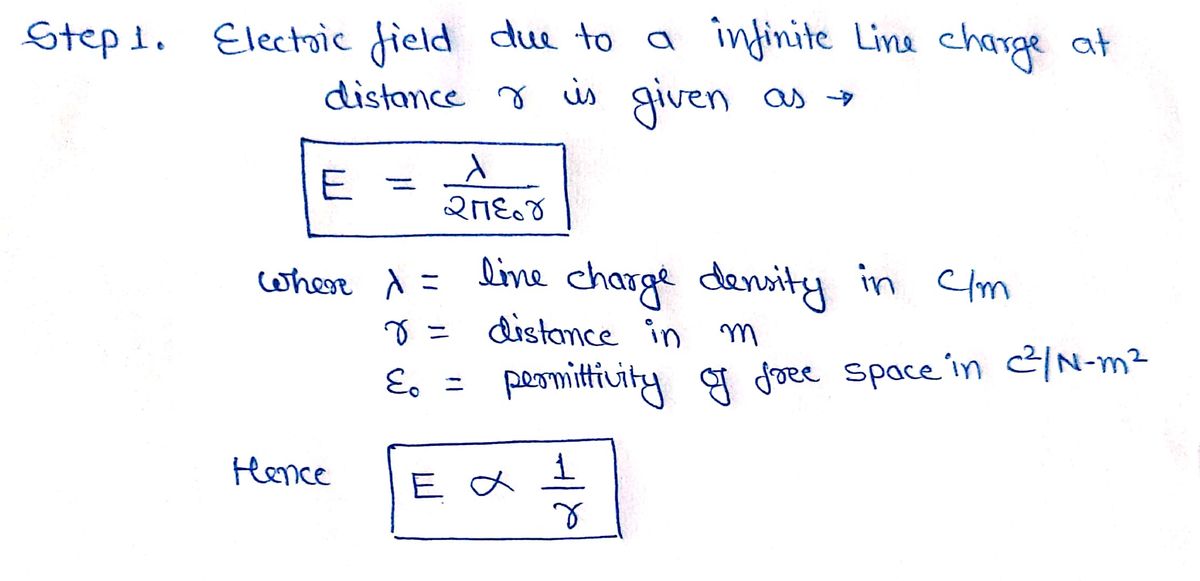 Step 1. Electric field due to a infinite Line charge at
distance r is given as →
E = λ / 2πε₀r
where λ = line charge density in C/m
r = distance in m
ε₀ = permittivity of free space in C²/N-m²
Hence E ∝ 1/r